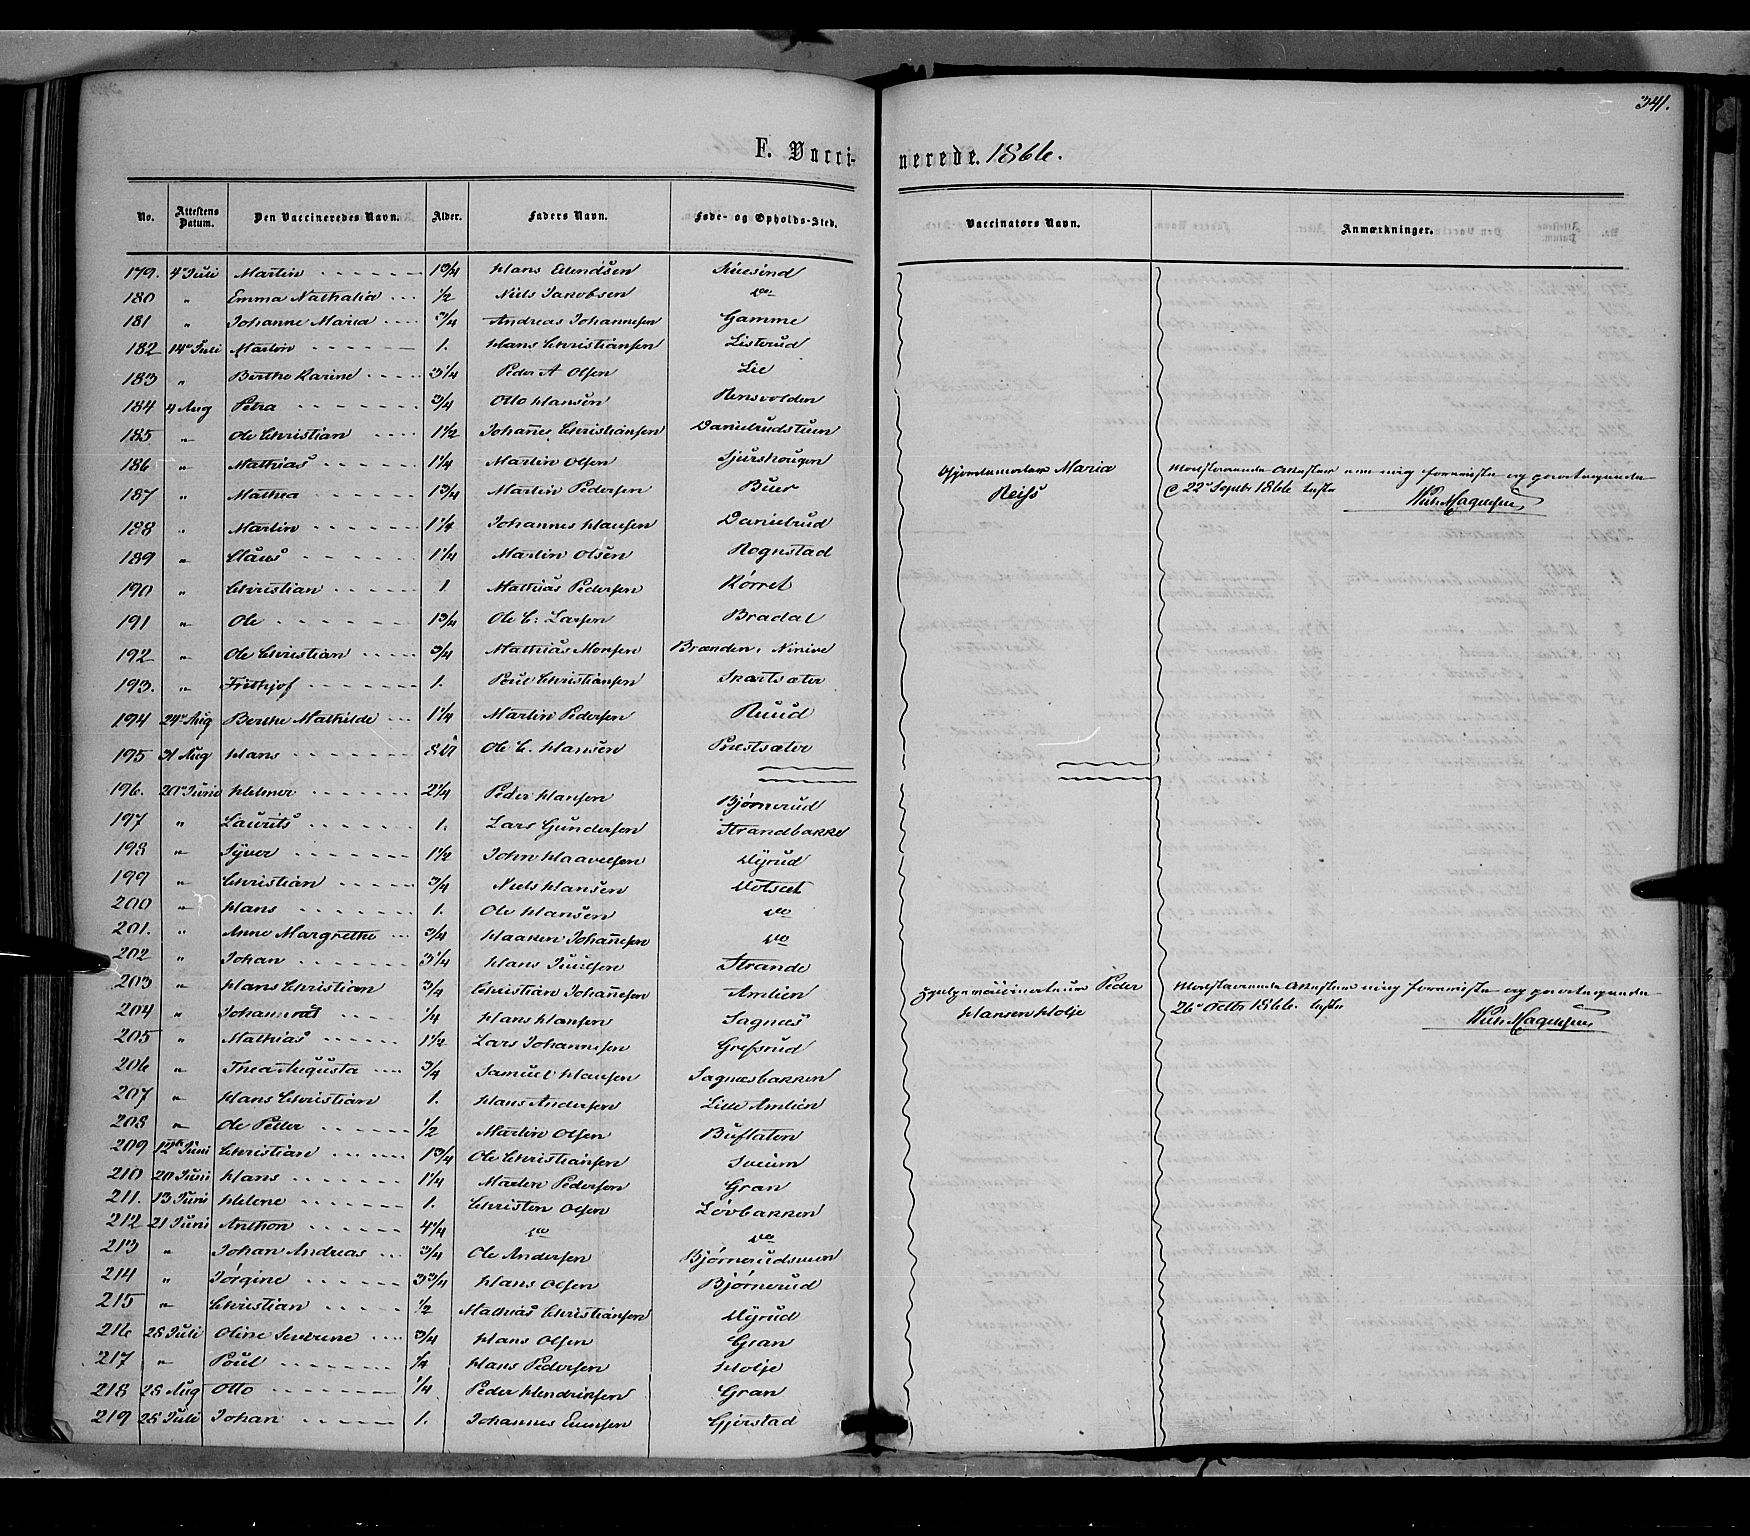 341.
F. Vacci-nerede. 1866.
No. | Attestens Datum. | Den Vaccineredes Navn. | Alder. | Faders Navn. | Føde- og Opholds-Sted. | Vaccinators Navn. | Anmærkninger.
179. 4de Juli Martin 1 3/4 Hans
180 " Emma Nathalia 1/2 Niels Jakobsen do
181 " Johanne Maria 3/4 Andreas Johannesen Gamme
182 14de Juli Martin 1. Hans Christiansen
183 " Berthe Karine 3 1/4 Peder A Olsen Lie
184 4 Aug Petra 3/4 Otto Hansen Rensvolden
185 " Ole Christian 1 1/2 Johannes Christiansen Danielrudstuen
186 " Mathias 1 1/4 Martin Olsen Sjurskougen
Gjordemoder Maria Reiss
187 " Mathea 1 3/4 Martin Pedersen
22de Septr 1866
188 " Martin 1 1/4 Johannes Hansen Danielrud
189 " Claus 1 1/4 Martin Olsen Rognstad
190 " Christian 1. Mathias Pedersen Kørret
191 " Ole 1 3/4 Ole C. Larsen Bradal
192 " Ole Christian 3/4 Mathias Monsen Brænden, Ninive
193. " Frithjof 1. Poul Christiansen Skartsæter
194 24de Aug Berthe Mathilde 1 1/4 Martin Pedersen Ruud
195 31 Aug Hans Ole C. Hansen Prestsæter
196. 20de Juni Helmer 2 1/4 Peder Hansen Bjørnerud
197 " Laurits 1. Lars Gundersen Strandbakke
198 " Syver 1 1/2 John Haavelsen Myrud
199 " Christian 3/4 Niels Hansen
200 " Hans 1. Ole Hansen do
201. " Anne Margrethe 3/4 Haaken Johannesen do
202 " Johan 3 1/4 Hans Juulsen Strande
203 " Hans Christian 3/4 Christian Johannesen Amlien
Hjelpevaccinateur Peder Hansen Holje
204 " 1/4 Hans Hansen Sagnæs
26de Octbr 1866.
205 " Mathias 1 1/2 Lars Johannesen Grefsrud
206 " Thea Augusta 3/4 Samuel Hansen Sagnæsbakken
207 " Hans Christian 1. Hans Andersen Lille Amlien
208 " Ole Petter 1/2 Martin Olsen Buflaten
209 12te Juni Christian 1 3/4 Ole Christiansen Sveum
210 20 Juni Hans 1 1/4 Martin Pedersen Gran
211. 13 Juni Helene 1. Christen Olsen Løvbakken
212 21 Juni Anthon 4 1/4 do do
213 " Johan Andreas 3/4 Ole Andersen
214 " Jørgine 3 3/4 Hans Olsen Bjørnerud
215 " Christian 1/2 Mathias Christiansen Myrud
216 28 Juli Oline Severine 3/4 Hans Olsen Gran
217 " Poul 1/4 Hans Pedersen Holje
218 28 Aug Otto 1/4 Peder Hendriksen Gran
219 28 Juli Johan 1. Johannes Evensen Gjerstad